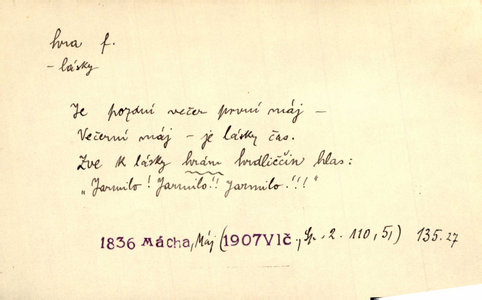 hra f.
- lásky
Je pozdní večer první máj –
Večerní máj – je lásky čas.
Zve k lásky hrám hrdliččin hlas:
"Jarmilo! Jarmilo!! Jarmilo!!!"
1836 Mácha, Máj (1907 Vlč., Sp. 2. 110, 5) 135.27